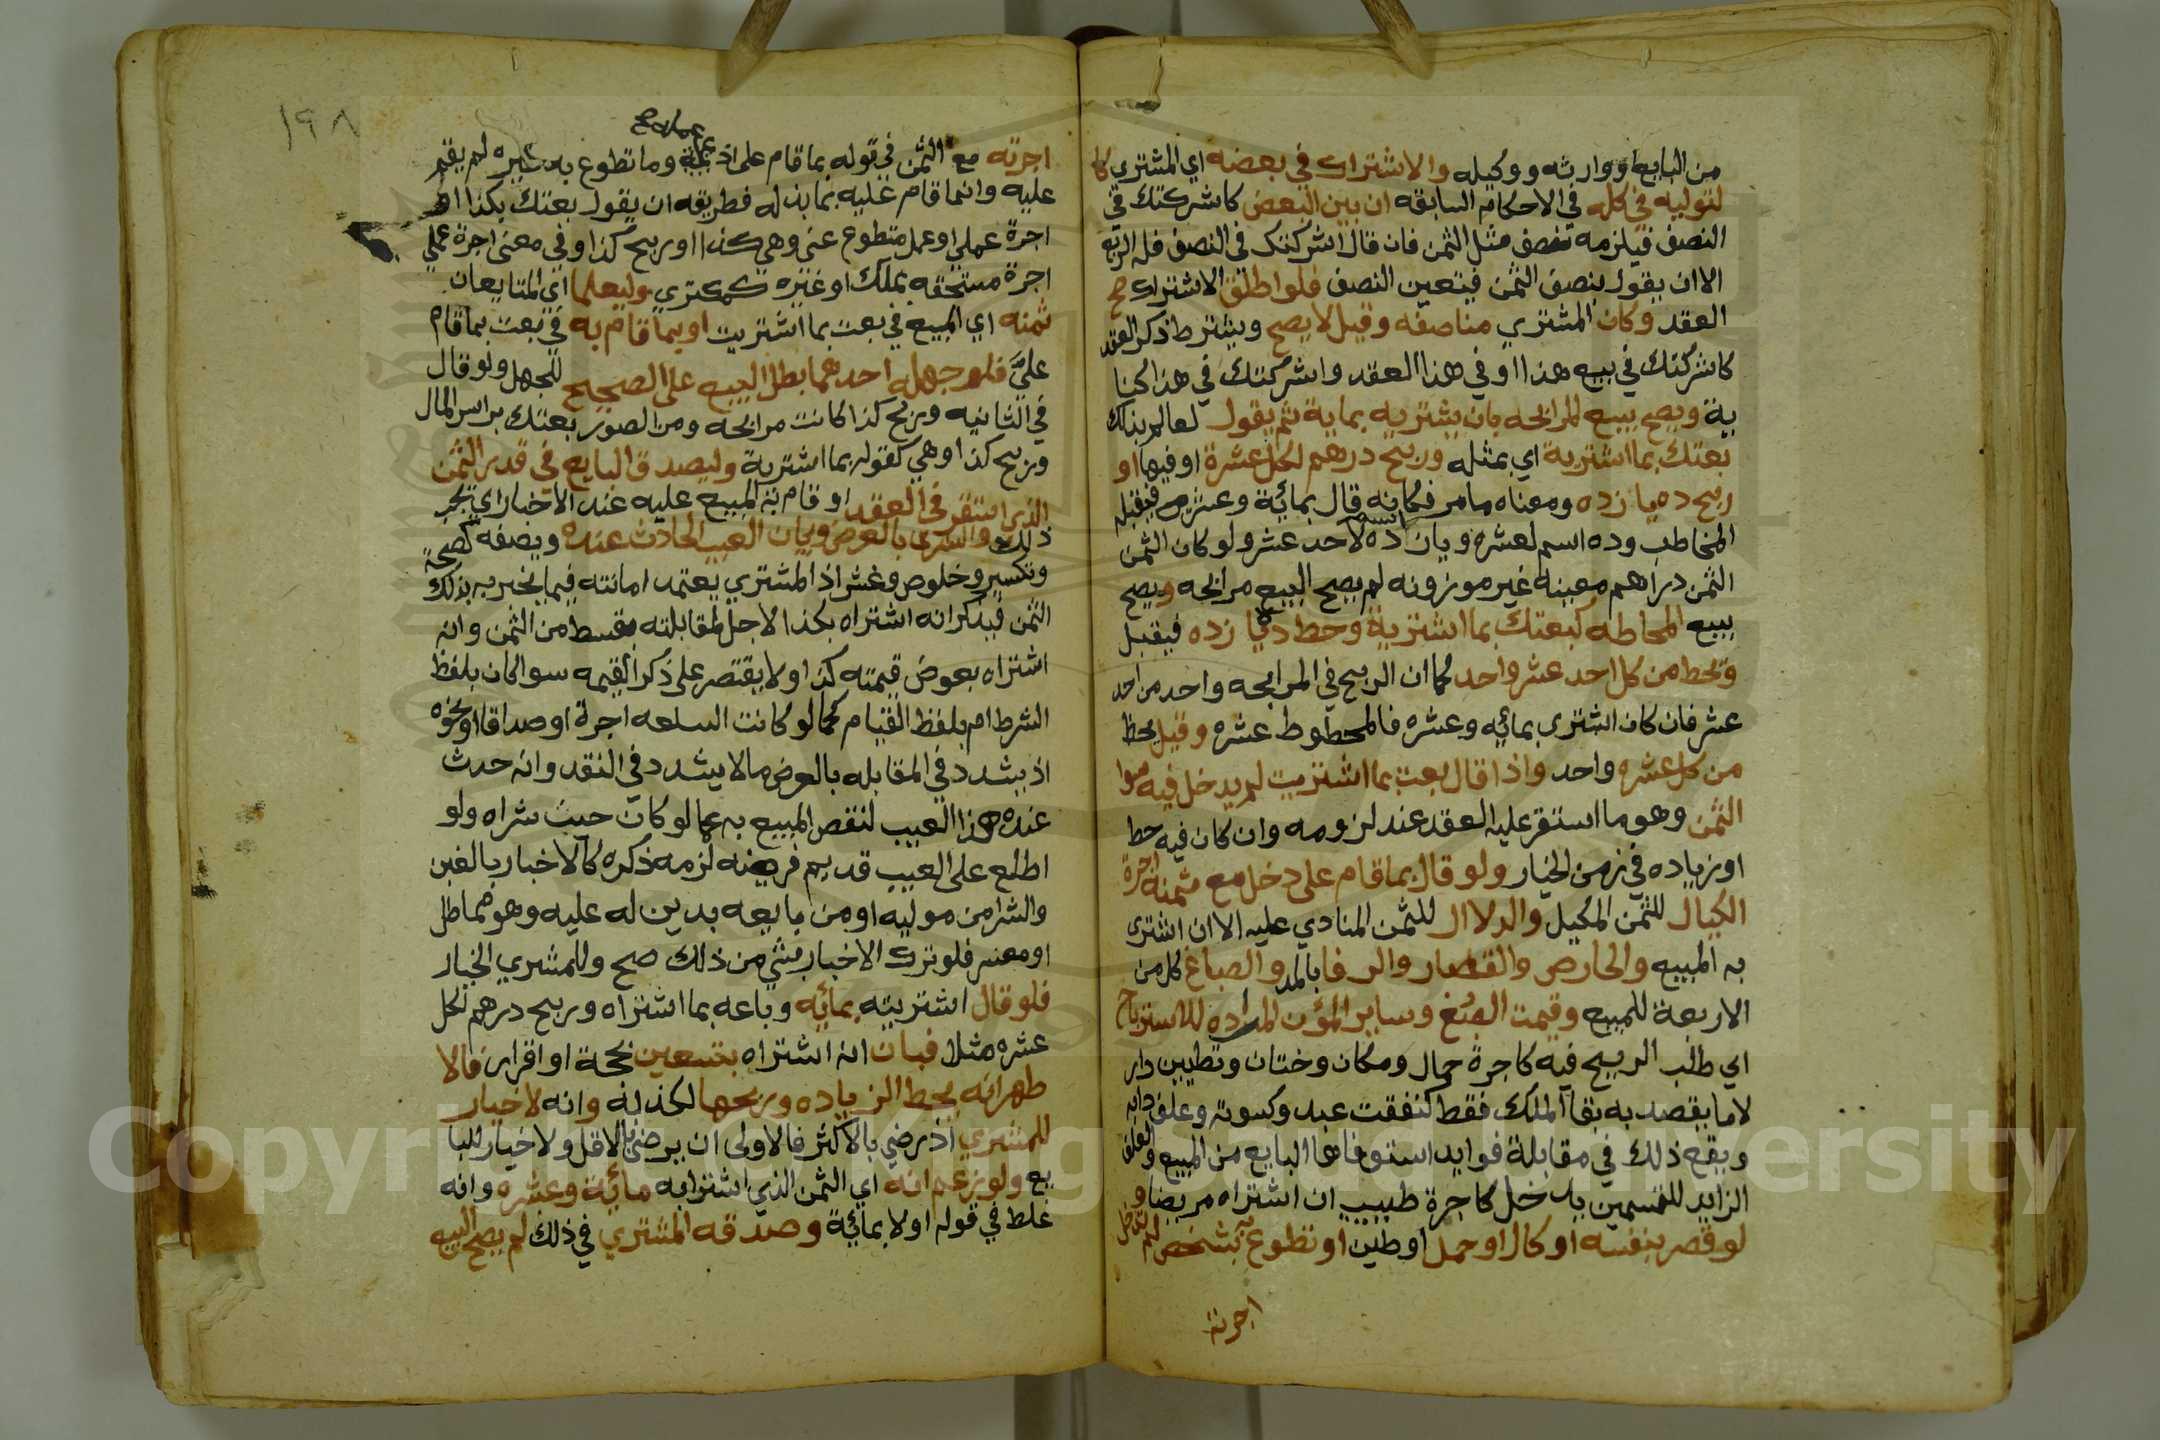 من البايع او وارثه ووكيله والاشتراك في بعضه اي المشتري كا
لتوليه في كله في الاحكام السابقه ان بين البعض كاشركتك في
النصف فيلزمه نصف مثل الثمن فان قال اشركتك في النصف فله الربع
الا ان يقول بنصف الثمن فيتعين النصف فلو اطلق الاشتراك صح
العقد وكان المشتري مناصفه وقيل لا يصح ويشترط ذكر العقد
كاشركتك في بيع هذا او في هذا العقد واشركتك في هذا كنا
ية ويصح بيع المرابحه بان يشتريه بماية ثم يقول لعالم بذلك
بعتك بما اشتريه اي بمثله وربح درهم لكل عشرة او فيها او
ربح ده يا زده ومعناه ما مر فكانه قال بمائية وعشره فيقبله
المخاطب وده اسم لعشره ويازده اسم لاحد عشر ولو كان الثمن
الثمن دراهم معينه غير موزونه لم يصح البيع مرابحه ويصح
بيع المحاطه كبعتك بما اشتريه وحط ده يا زده فيقبل
وتحط من كل احد عشر واحد كما ان الربح في المرابحه واحد من احد
عشر فان كان اشترى بمائيه وعشره فالمحطوط عشره وقيل يحط
من كل عشره واحد واذا قال بعت بما اشتريت لم يدخل فيه سوا
الثمن وهو ما استقر عليه العقد عند لزومه وان كان فيه حط
او زياده في زمن الخيار ولو قال بما قام علي دخل مع ثمنه اجرة
الكيال للثمن المكيل والدلاال للثمن المنادي عليه الا ان اشترى
به المبيع والحارص والقصار والرفا بالمد والصباغ كل من
الاربعة للمبيع وقيمت الصبغ وساير المؤن المراده للاسترباح
اي طلب الربح فيه كاجرة حمال ومكان وختان وتطيين دار
لا ما يقصد به بقا الملك فقط كنفقت عبد وكسوته وعلف دابه
ويقع ذلك في مقابلة فوايد استوفاها البايع من المبيع والعلف
الزايد للتسمين يدخل كاجرة طبيب ان اشتراه مريضا و
لو قصر بنفسه او كال او حمل او طين او تطوع به شخص لم تدخل
اجرته
١٩٨
عمله صح
اجرته مع الثمن في قوله بما قام على اذ عمله وما تطوع به غيره لم يقم
عليه وانما قام عليه بما بذله فطريقه ان يقول بعتك بكذا او
اجرة عملي او عمل متطوع عني وهي كذا او ربح كذا وفي معنى اجرة عملي
اجرة مستحقه بملك او غيره كمكتري وليعلما اي المتبايعان
ثمنه اي المبيع في بعت بما اشتريت او بما قام به في بعت بما قام
عليَّ فلو جهله احدهما بطل البيع على الصحيح للجهل ولو قال
في الثانيه وربح كذا كانت مرابحه ومن الصور بعتك براس المال
وربح كذا وهي كقوله بما اشترية وليصدق البايع في قدر الثمن
الذي استقر في العقد او قام به المبيع عليه عند الاخبار اي يجب
ذلك والشري بالعرض وبيان العيب الحادث عنده ويصفه كصحة
وتكسير وخلوص وغش اذ المشتري يعتمد امانته فيما يخبر به بذلك
الثمن فيذكر انه اشتراه بكذا لاجل لمقابلته بقسط من الثمن وانه
اشتراه بعوض قيمته كذا ولا يقتصر على ذكر القيمه سوا كان بلفظ
الشرط ام بلفظ القيام كما لو كانت السلعه اجرة او صداقا او نحوه
اذ يشدد في المقابله بالعرض ما لا يشدد في النقد وانه حدث
عنده هذا العيب لنقص المبيع به عما لو كان حيث شراه ولو
اطلع على العيب قديم فرضيه لزمه ذكره كالاخبار بالغبن
والشرا من موليه او من بايعه بدين له عليه وهو مماطل
او معسر فلو ترك الاخبار بشي من ذلك صح وللمشري الخيار
فلو قال اشتريته بمائيه وباعه بما اشتراه وربح درهم لكل
عشره مثلا فبان انه اشتراه بتسعين بحجة او اقرار فالا
ظهر انه يحط الزياده وربحها لكذبه وانه لا خيار
للمشري اذ رضي بالاكثر فالاولى ان يرضى بالاقل ولا خيار للبا
يع ولو زعم انه اي الثمن الذي اشترا به مائية وعشره وانه
غلط في قوله اولا بمائية وصدقه المشتري في ذلك لم يصح البيع
Copyright © King Saud University